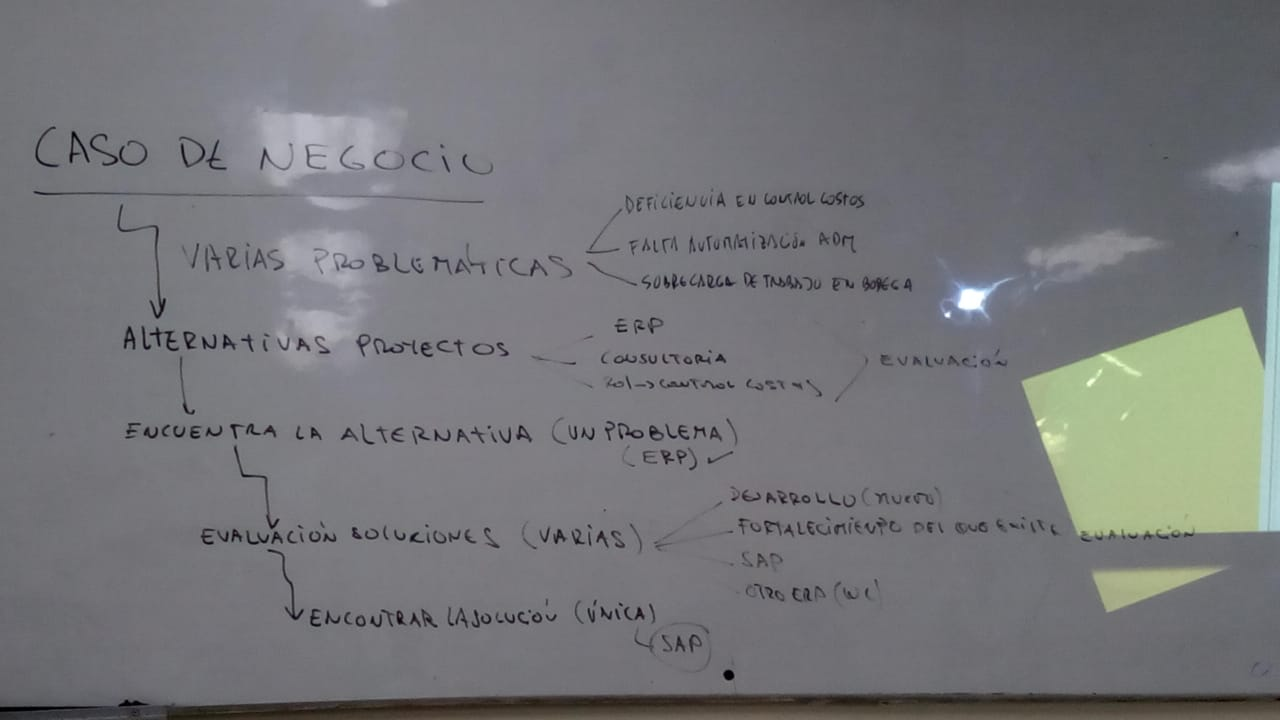 CASO DE NEGOCIO
VARIAS PROBLEMÁTICAS
DEFICIENCIA EN CONTROL COSTOS
FALTA AUTOMATIZACIÓN ADM
SOBRECARGA DE TRABAJO EN BODEGA
ALTERNATIVAS PROYECTOS
ERP
CONSULTORIA
CONTROL COSTOS
EVALUACIÓN
ENCUENTRA LA ALTERNATIVA (UN PROBLEMA)
(ERP) ✓
EVALUACIÓN SOLUCIONES (VARIAS)
DESARROLLO (NUEVO)
FORTALECIMIENTO DEL QUE EXISTE
EVALUACIÓN
SAP
OTRO ERP
ENCONTRAR LA SOLUCIÓN (ÚNICA)
SAP